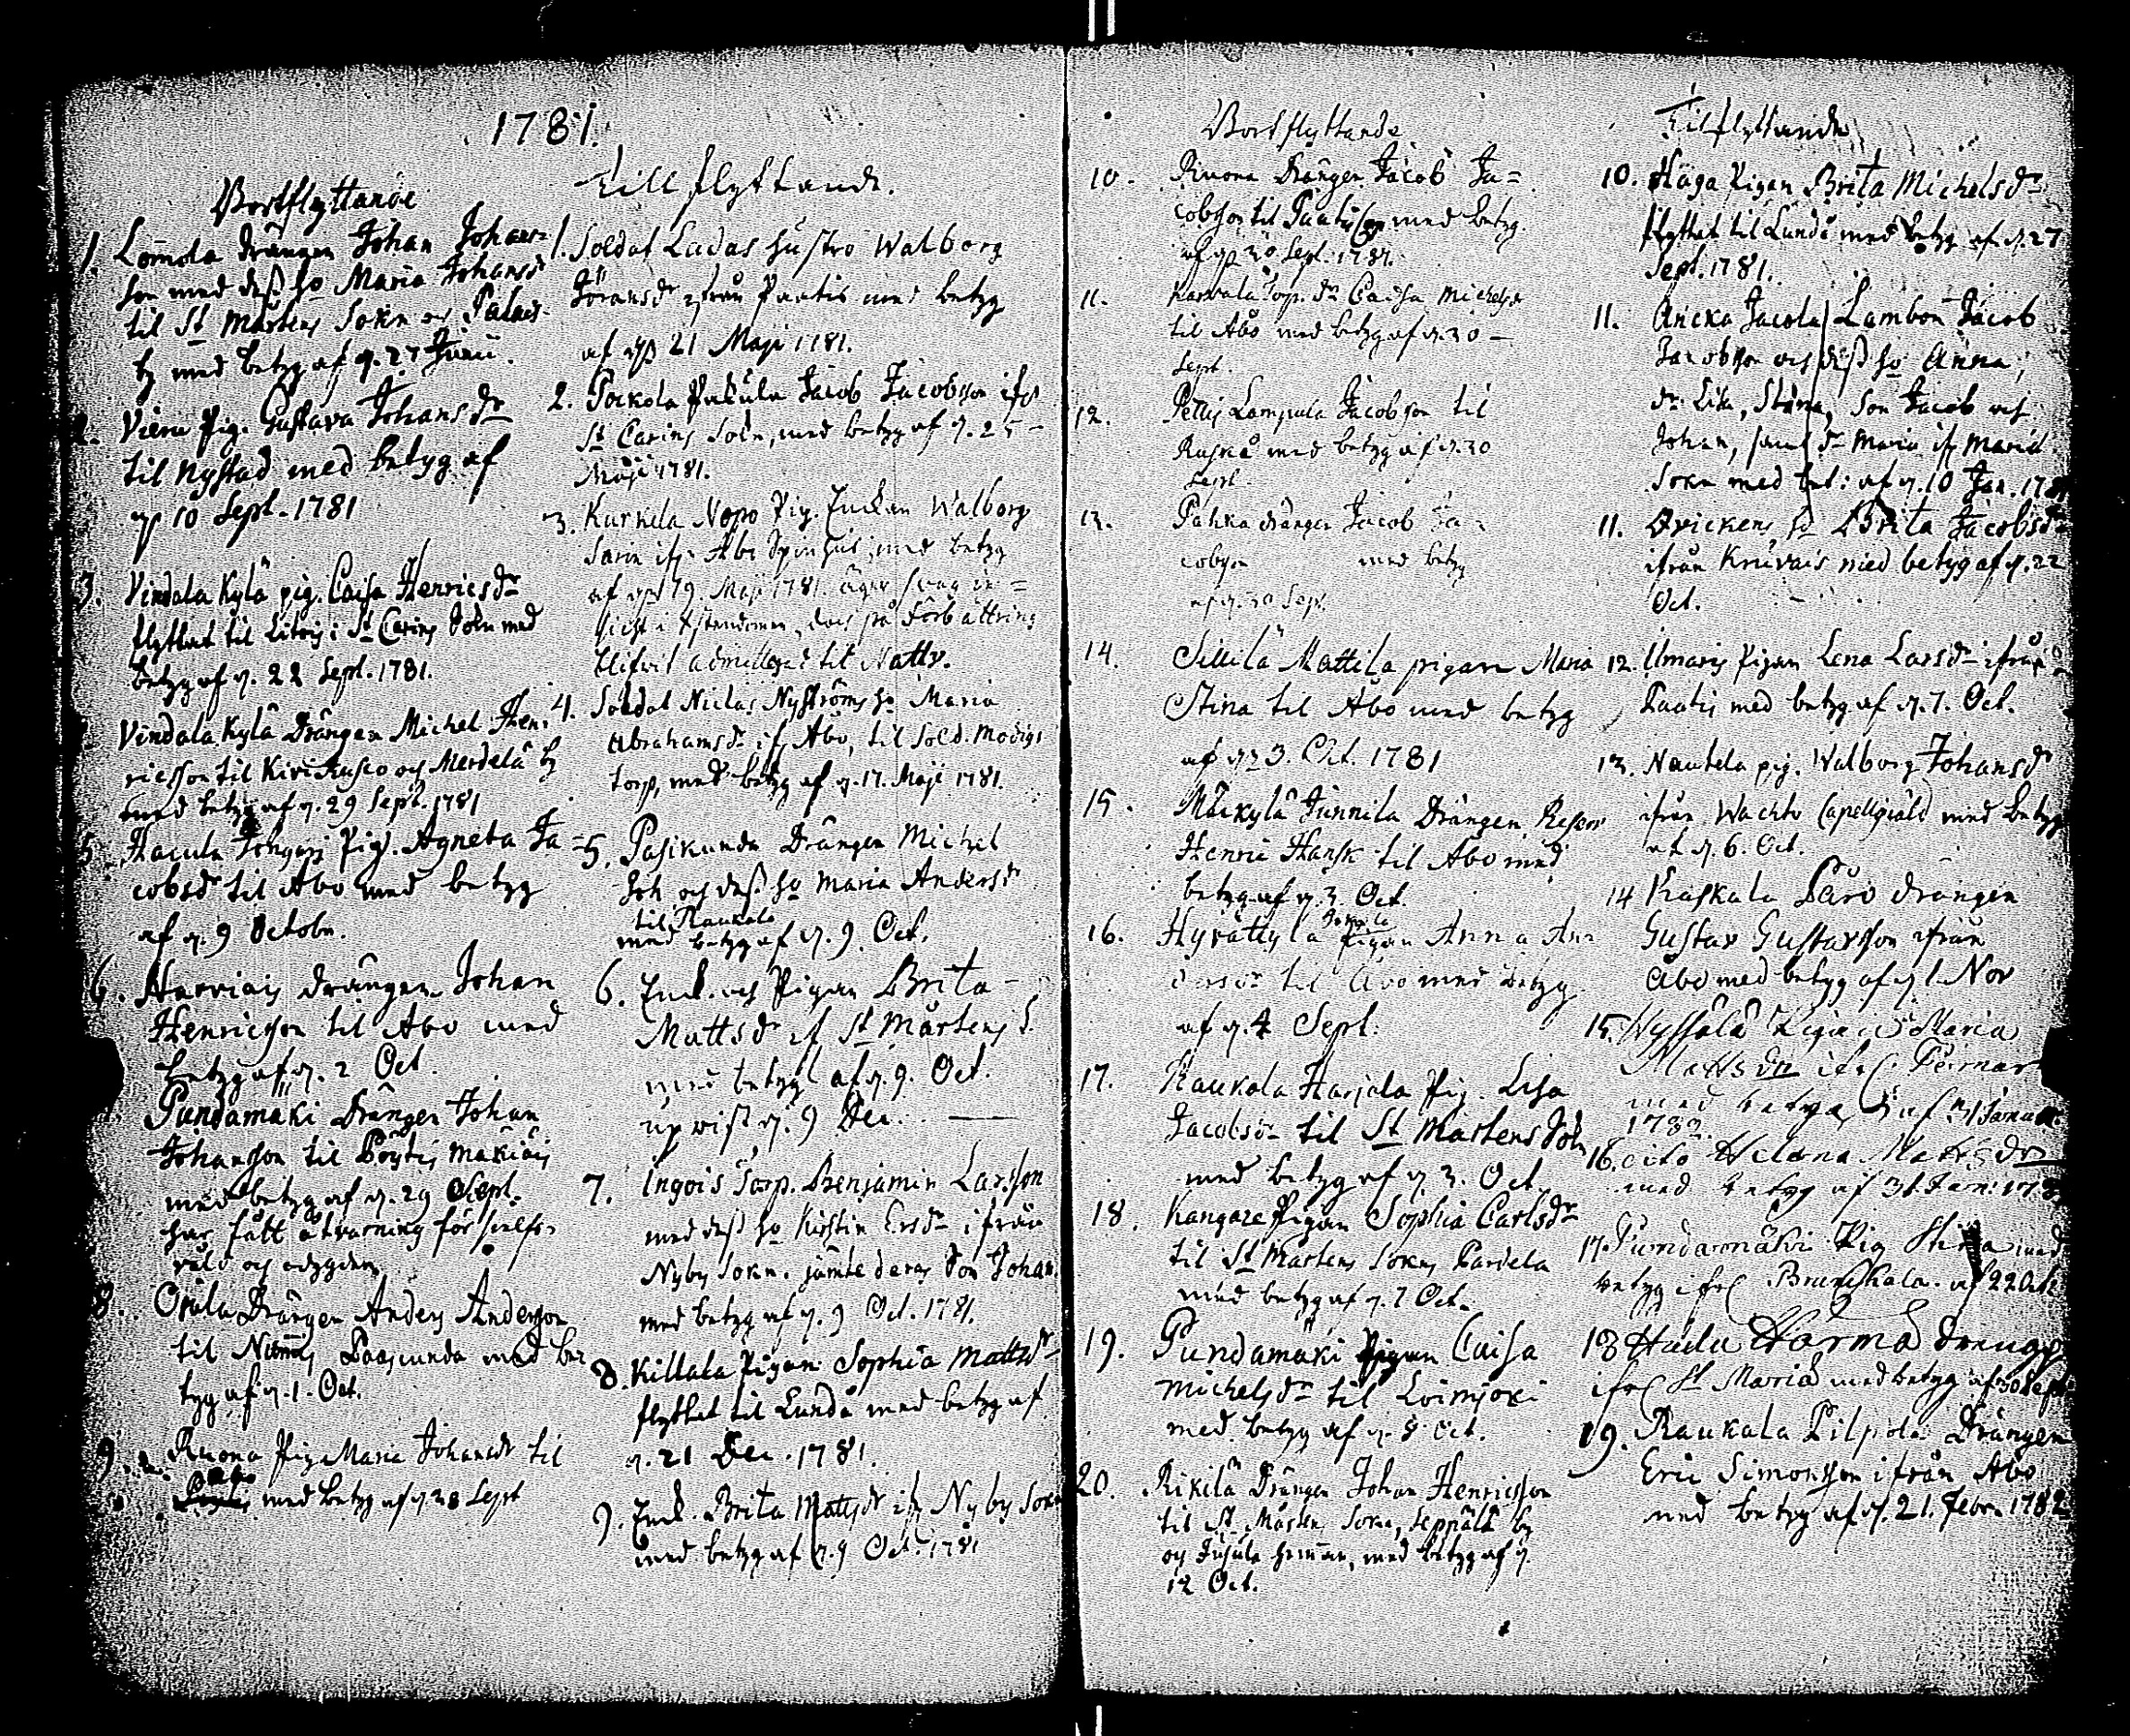 1781.
Bortflyttande
1. Lomola Drängen Johan Johans-
son med dess ho Maria Johansdr
til St Mårtens Sokn och Palais
by med betyg af d. 27 Junii.
2. Vieru Pig. Gustava Johansdr
til Nystad med betyg af
d 10 Sept. 1781
3. Vindala Kylä pig. Caisa Henricsdr
flyttat til Litois i St Carins Sokn med
betyg af d. 22 Sept. 1781.
Vindala Kylä Drängen Michel Hen-
ricsson til Kiri och Merdelä by
med betyg af d. 29 Sept. 1781
5. Hacula Pig. Agneta Ja-
cobsdr til Abo med betyg
af d. 9 Octobr.
6. Harviais Drängen Johan
Henricsson til Abo med
betyg af d. 2 Oct
Pundamäki Drängen Johan
Johansson til Pöytis Makiäis
med betyg af d. 29 Sept.
har fått åtvarning för
och
8. Orula Drängen Anders Andersson
til Nummis med be-
tyg af d. 1. Oct.
9. Ruona Pig. Maria Johansdr til
Abo
med betyg af d 28 Sept
Till flyttande.
1. Soldat Ladas hustro Walborg
Jöransdr ifrån Paatis med betyg
af d 21 Maji 1781.
2. Pockola Jacob Jacobsson ifr
St Carins Sokn, med betyg af d. 25
Maji 1781.
3. Kurkela Nopo Pig. Enckan Walborg
ifr. Abo Spinhus, med betyg
af d 19. Maji 1781. äger svag in-
sicht i Christendomen, dock på Förbättring
blifvit admitterad til Nattv.
4. Soldat Niclas Nyströms ho Maria
Abrahamsdr ifr Abo, til Sold. Modigs
torp, med betyg af d. 17. Maji 1781.
5. Pasikunda Drängen Michel
Joh och dess ho Maria Andersdr
til Raukola
med betyg af d. 9. Oct.
6. Enck. och Pigan Brita
Mattsdr if St Mårtens S.
med betyg af d. 9. Oct.
upvist d. 9 Dec.
7. Ingois Torp. Benjamin Larsson
med dess ho Kirstin Ersdr ifrån
Nyby Sokn. jämte deras Son Johan
med betyg af d. 9 Oct. 1781.
8. Killala Pigan Sophia Mattsdr
flyttat til Lundå med betyg af
d. 21 Dec. 1781.
9. Enck. Brita Mattsdr ifr Nyby Sokn
med betyg af d. 9 Oct. 1781
Bortflyttande
10. Ruona Drängen Jacob Ja-
cobsson til Paatis med betyg
af d 30 Sept. 1781.
11. Karvala Torp. dr Caisa Michelsdr
til Abo med betyg af d. 30
Sept.
12. Pettis Lampula Jacobsson til
Rusko med betyg af d. 30
Sept.
13. Pahka drängen Jacob Ja-
cobsson med betyg
af d. 30 Sept
14. Sillilä Mattila pigan Maria
Stina til Abo med betyg
af d 3. Oct. 1781
15. Mäkylä Junnila Drängen
Henric Hansk til Abo med
betyg af d. 3 Oct.
16. Hyrättylä Pigan Anna An-
dersdr til Abo med betyg
af d. 4 Sept.
17. Raukola Harjola Pig. Lisa
Jacobsdr til St Martens Sokn
med betyg af d 3. Oct
18. Kangare Pigan Sophia Carlsdr
til St Martens Sokn Pardela
med betyg af d. 7 Oct.
19. Pundamäki Pigan Caisa
Michelsdr til Loimjoki
med betyg af d. 8 Oct.
20. Rikilä Drängen Johan Henricsson
til St Mårtens Sokn, Seppälä by
och Jusula hemman, med betyg af d.
12 Oct.
Tilflyttande
10. Häga Pigan Brita Michelsdr
flyttat til Lundå med betyg af d. 27
Sept. 1781.
11. Ancka Jacola Lambon Jacob
Jacobsson och dess ho Anna,
dr Lisa, Stina, Son Jacob och
Johan, samt dr Maria ifr Mariä
Sokn med bet: af d. 10 Jan. 1781
11. ho Brita Jacobsdr
ifrån Krusvais med betyg af d. 22
Oct.
12. Ilmaris Pigan Lena Larsdr ifrån
Paatis med betyg af d. 7. Oct.
13. Nautela pig. Walborg Johansdr
ifrån Wachto Capellgiäld med betyg
af d. 6. Oct.
14 Kaskala Päro drängen
Gustav Gustavsson ifrån
Åbo med betyg af d 1 Nov
15. Hyssälä Pigan Maria
Mattsdr ifr. Pernar
med betyg af Janua
1782
16. dito Helena Mattsdr
med betyg af 31 Jan: 178
17. Pundarmäki Pig Stina med
betyg ifr Brunkala. af 22 Oct
18 Hadu Harma dreng
ifr St Maria med betyg af 30 Sept
19. Raukala Pilpola Drängen
Eric Simonsson ifrån Abo
med betyg af d. 21. Febr. 1782